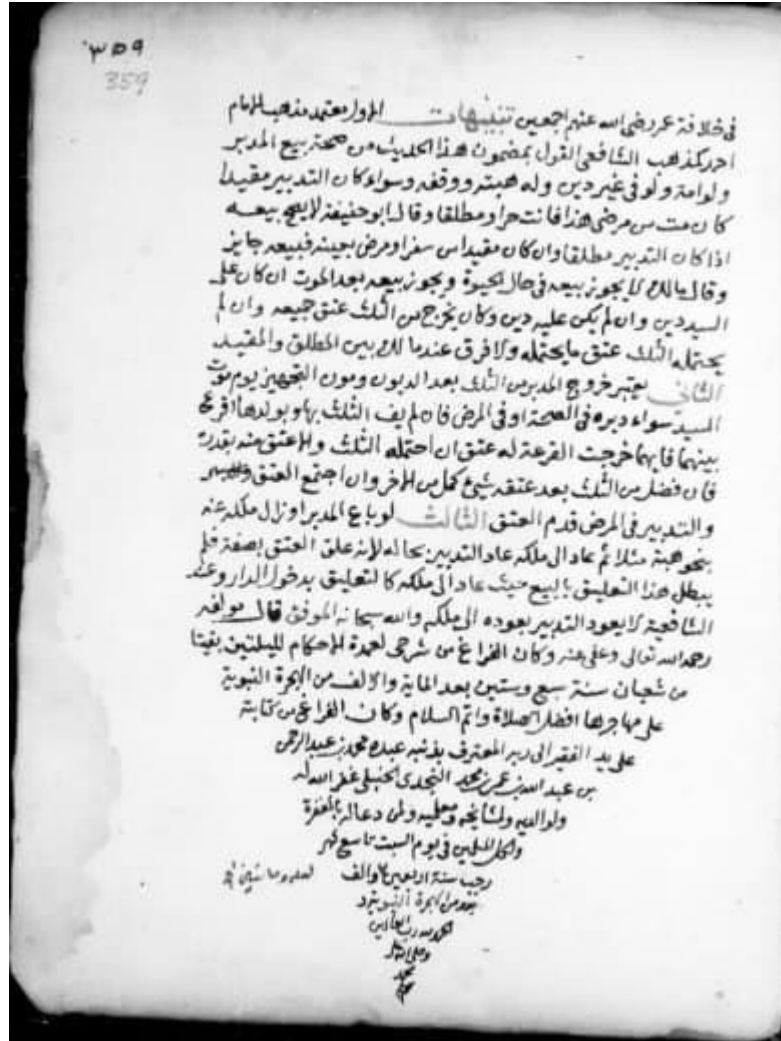 ٣٥٩
359
في خلافة عمر رضي الله عنهم اجمعين تنبيهات الاول معتمد مذهب الامام
احمد كمذهب الشافعي القول بمضمون هذا الحديث من صحة بيع المدبر
ولو امة ولو في غير دين وله هبته ووقفه وسواء كان التدبير مقيدا
كان مت من مرضي هذا فانت حر او مطلقا وقال ابو حنيفة لا يصح بيعه
اذا كان التدبير مطلقا وان كان مقيدا من سفر او مرض بعينه فبيعه جايز
وقال مالك لا يجوز بيعه في حال الحيوة ويجوز بيعه بعد الموت ان كان على
السيد دين وان لم يكن عليه دين وكان يخرج من الثلث عتق جميعه وان لم
يحتمله الثلث عتق ما يحتمله ولا فرق عند مالك بين المطلق والمقيد
الثاني يعتبر خروج المدبر من الثلث بعد الديون ومون التجهيز يوم موت
السيد سواء دبره في الصحة او في المرض فان لم يف الثلث بها وبولدها اقرع
بينهما فايهما خرجت القرعة له عتق ان احتمله الثلث والا عتق منه بقدره
فان فضل من الثلث بعد عتقه شيئ كمل من الاخر وان اجتمع العتق
والتدبير في المرض قدم العتق الثالث لو باع المدبر او زال ملكه عنه
بنحو هبة مثلا ثم عاد الى ملكه عاد التدبير بحاله لانه علق العتق بصفة فلم
يبطل هذا التعليق بالبيع حيث عاد الى ملكه كالتعليق بدخول الدار وعند
الشافعية لا يعود التدبير بعوده الى ملكه والله سبحانه الموفق قال مولفه
رحمه الله تعالى وعفى عنه وكان الفراغ من شرحي لعمدة الاحكام لليلتين بقيتا
من شعبان سنة سبع وستين بعد الماية والالف من الهجرة النبوية
على مهاجرها افضل الصلاة واتم السلام وكان الفراغ من كتابته
على يد الفقير الى ربه المعترف بذنبه عبده محمد بن عبد الرحمن
بن عبد الله بن عمر بن محمد النجدي الحنبلي غفر الله له
ولوالديه ولمشايخه ومعلميه ولمن دعا له بالمغفرة
ولكل المسلمين في يوم السبت تاسع شهر
رجب سنة اربعين والف
من الهجرة النبوية
الحمد لله رب العالمين
وصلى الله على
محمد